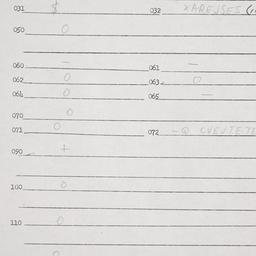 031 $ 032
050 0
060 - 061 -
062 0 063 0
064 0 065 -
070 0
071 0 072
090 +
100 0
110 0
0